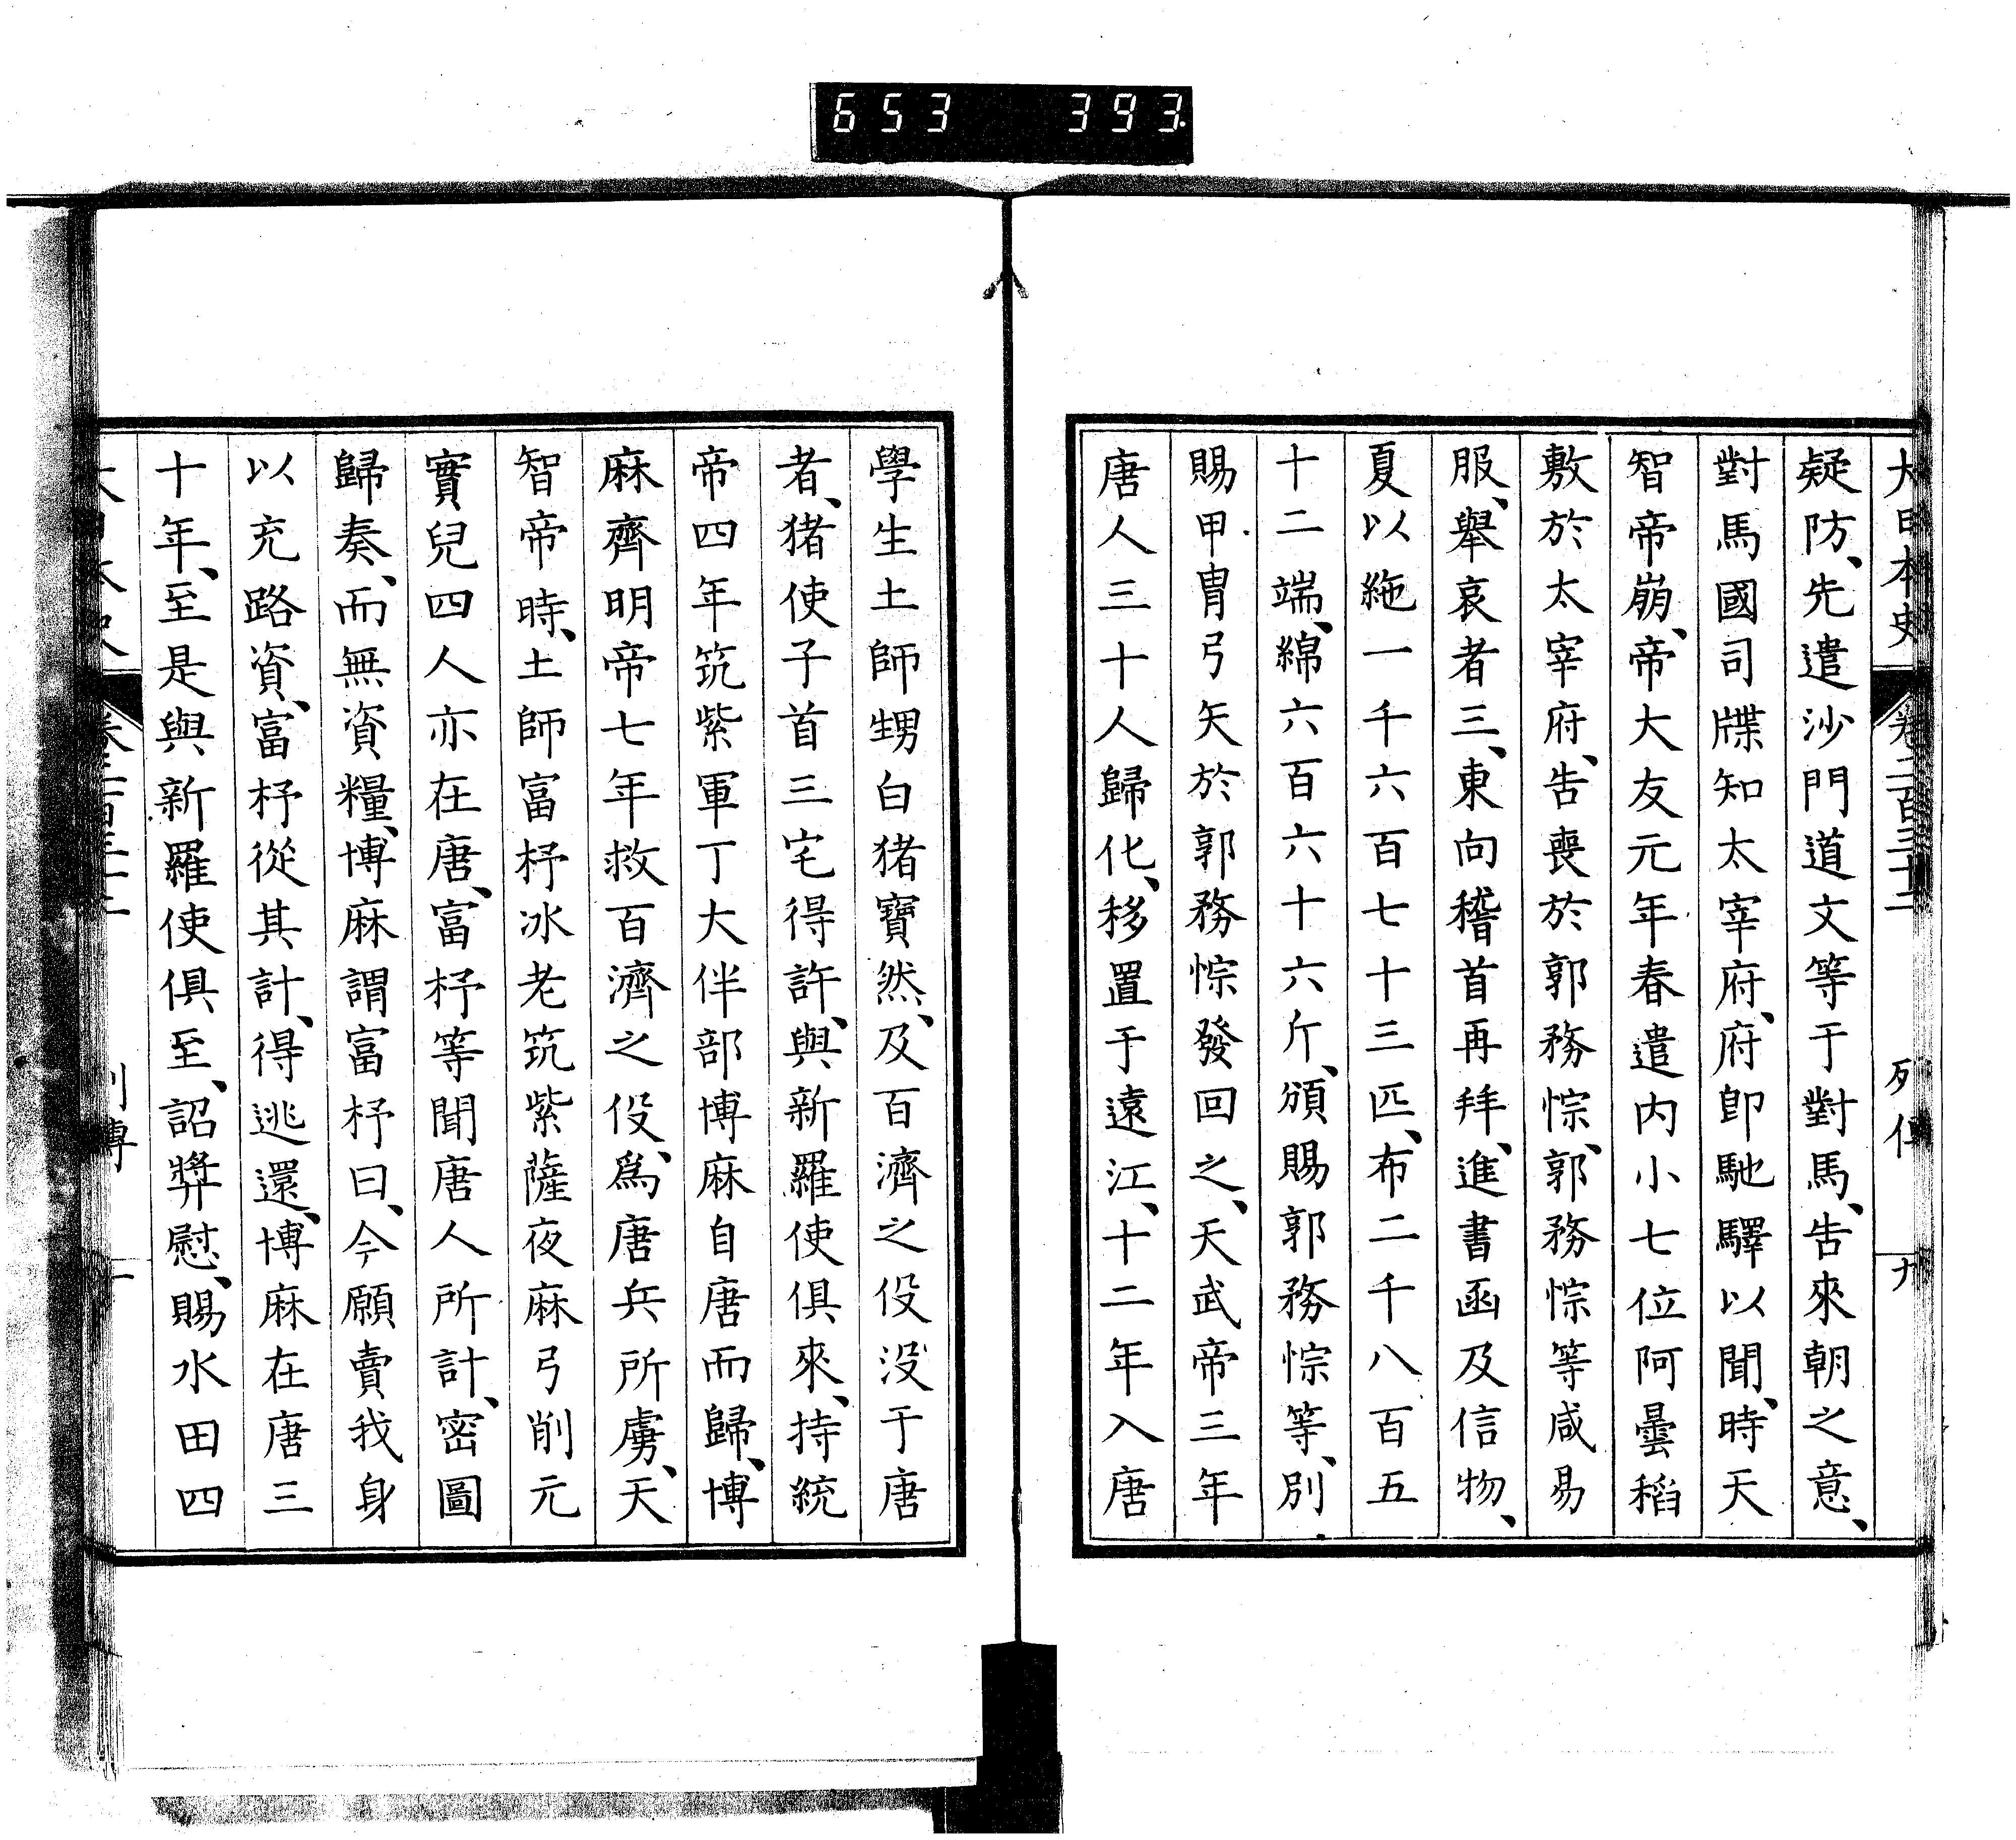 653 393
大日本史 卷二百三十二 列傳 九
疑防、先遣沙門道文等于對馬、告來朝之意、
對馬國司牒知太宰府、府卽馳驛以聞、時天
智帝崩、帝大友元年春遣内小七位阿曇稻
敷於太宰府、告喪於郭務悰、郭務悰等咸易
服、舉哀者三、東向稽首再拜、進書函及信物、
夏以絁一千六百七十三匹、布二千八百五
十二端、綿六百六十六斤、頒賜郭務悰等、別
賜甲冑弓矢於郭務悰發回之、天武帝三年
唐人三十人歸化、移置于遠江、十二年入唐
學生土師甥白猪寶然、及百濟之役没于唐
者、猪使子首三宅得許、與新羅使俱來、持統
帝四年筑紫軍丁大伴部博麻自唐而歸、博
麻齊明帝七年救百濟之役、爲唐兵所虜、天
智帝時、土師富杼冰老筑紫薩夜麻弓削元
實兒四人亦在唐、富杼等聞唐人所計、密圖
歸奏、而無資糧、博麻謂富杼曰、今願賣我身
以充路資、富杼從其計、得逃還、博麻在唐三
十年、至是與新羅使俱至、詔奬慰、賜水田四
大日本史 卷二百三十二 列傳 十